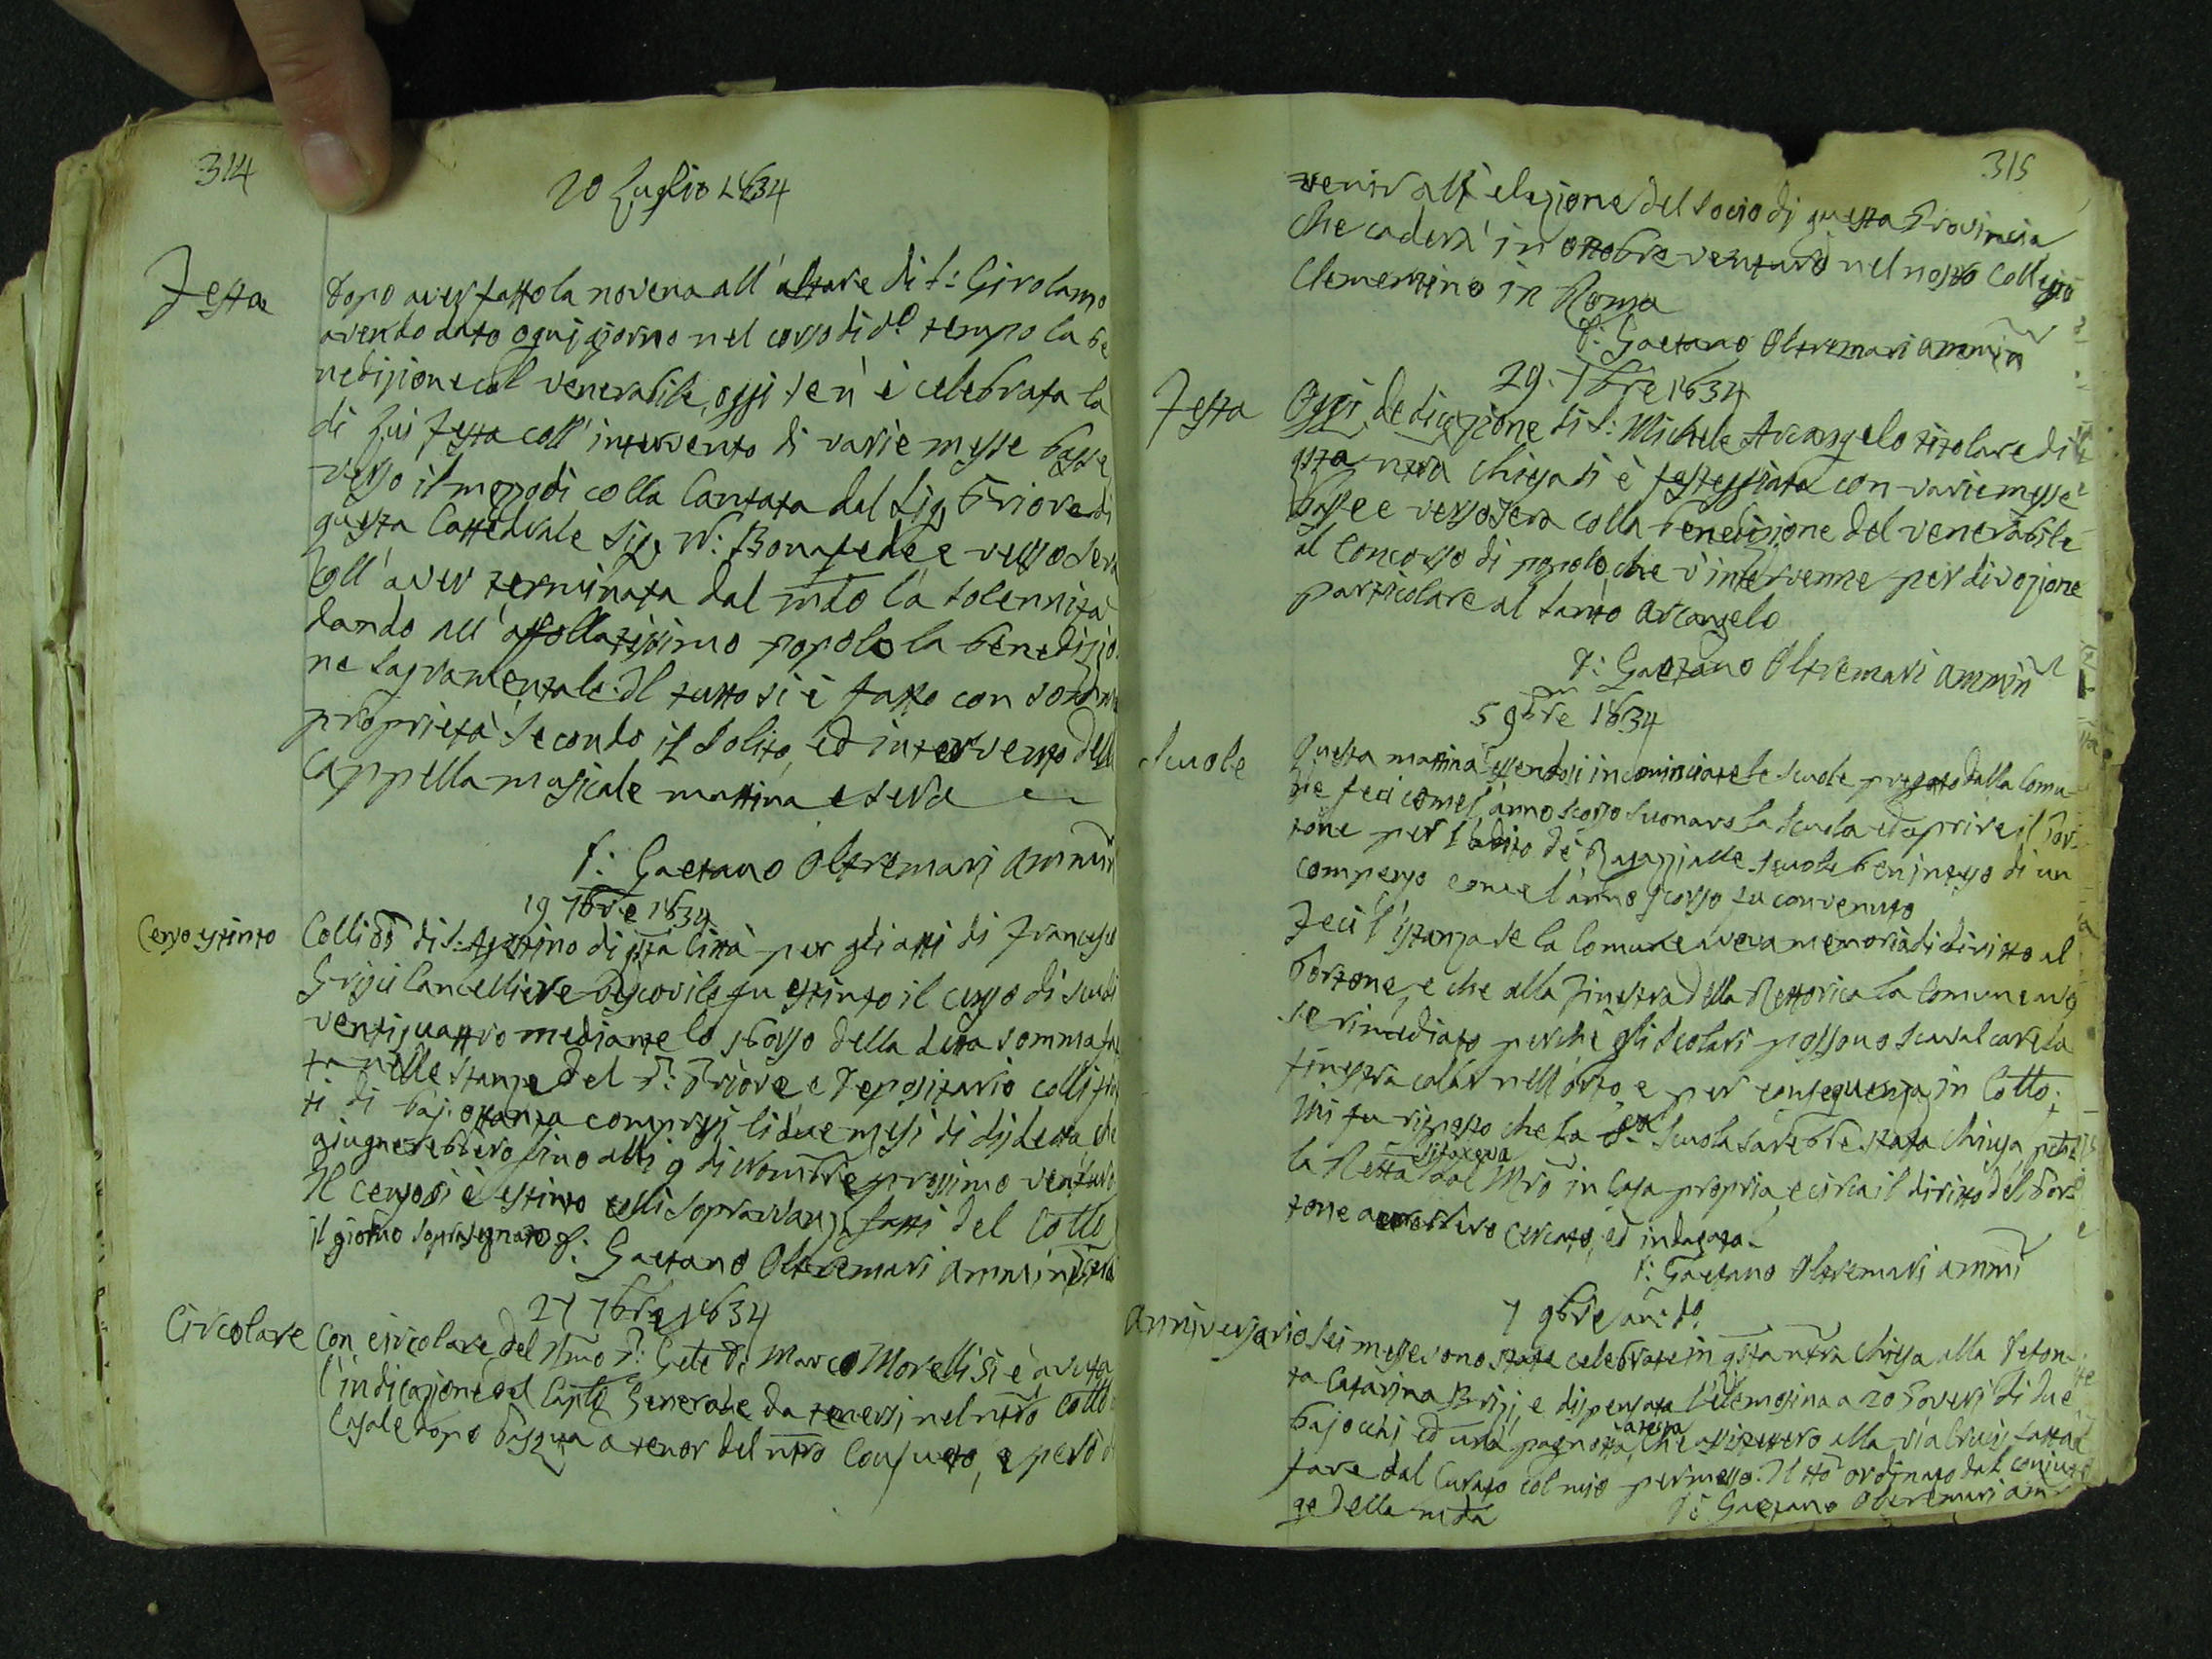 314
20 Luglio 1834
Festa
Dopo aver fatto la novena all'altare di S: Girolamo
avendo dato ogni giorno nel corso di do tempo la be
nedizione col venerabile, oggi se n'è celebrata la
di lui festa coll'intervento di varie messe basse
verso il mezzodì colla Cantata dal Sig Priore di
questa Cattedrale Sig. N: Bonafede e verso sera
coll'aver terminata dal mdo la solennità
dando all'affollatissimo popolo la benedizio
ne sagramentale. Il tutto si è fatto con somma
proprietà secondo il solito, ed intervento della
Cappella musicale mattina e sera
P: Gaetano Oltremari Ammin
19 7bre 1834
Censo estinto
Colli di S: Agostino di qsta Città per gli atti di Francesco
Grigi Cancelliere Vescovile fu estinto il censo di scudi
ventiquattro mediante lo sborso della detta somma fat
ta nelle stanze del P: Priore e Depositario colli frut
ti di baj: ottanta compresi li due mesi di disdetta che
giugnerebbero sino alli 9 di Novembre prossimo venturo
Il censo si è estinto colli sopravvanzi fatti del Collo
il giorno soprasegnato P: Gaetano Oltremari Ammin
27 7bre 1834
Circolare
Con circolare del Rmo P: Gnle D: Marco Morelli si è avuta
l'indicazione del Caplo Generale da tenersi nel nro Collo
Casale dopo Pasqua a tenor del nro Consueto, e però di
315
venir all'elezione del Socio di questa Provincia
che caderà in ottobre venturo nel nostro Collegio
Clementino in Roma
P: Gaetano Oltremari Ammin
29. 7bre 1834
Festa
Oggi dedicazione di S: Michele Arcangelo titolare di
qsta nra Chiesa si è festeggiata con varie messe
basse e verso sera colla benedizione del venerabile
al concorso di popolo che v'intervenne per divozione
particolare al Santo Arcangelo
P: Gaetano Oltremari Ammin
5 9bre 1834
Scuole
Questa mattina essendosi incominciate le scuole pregato dalla Comu
ne feci come l'anno scorso suonare la scuola ed aprire il Por
tone per l'adito de' Ragazzi alle scuole beninteso di un
compenso come l'anno scorso fu convenuto
Feci l'istanza se la Comune aveva memoria di diritto al
Portone, e che alla finestra della Rettorica la Comune aves
se rimediato perchè gli Scolari possono scavalcare la
finestra calar nell'orto e per conseguenza in Collo;
Mi fu risposto che la scuola sarebbe stata chiusa perchè
la Retta si faceva dal Mro in Casa propria, e circa il diritto del Por
tone avrebbero cercato, ed indagato
P: Gaetano Oltremari Ammi
7 9bre an: do
Anniversario
Sei messe sono state celebrate in qsta nra Chiesa alla Defon
ta Catarina Brizi e dispensata l'elemosina a 20 Poveri di due
bajocchi ed una pagnotta a testa che assistettero alla via Crucis fatta
fare dal Curato col mio permesso. Il tto ordinato dal coniu
ge della mda
P: Gaetano Oltremari Am